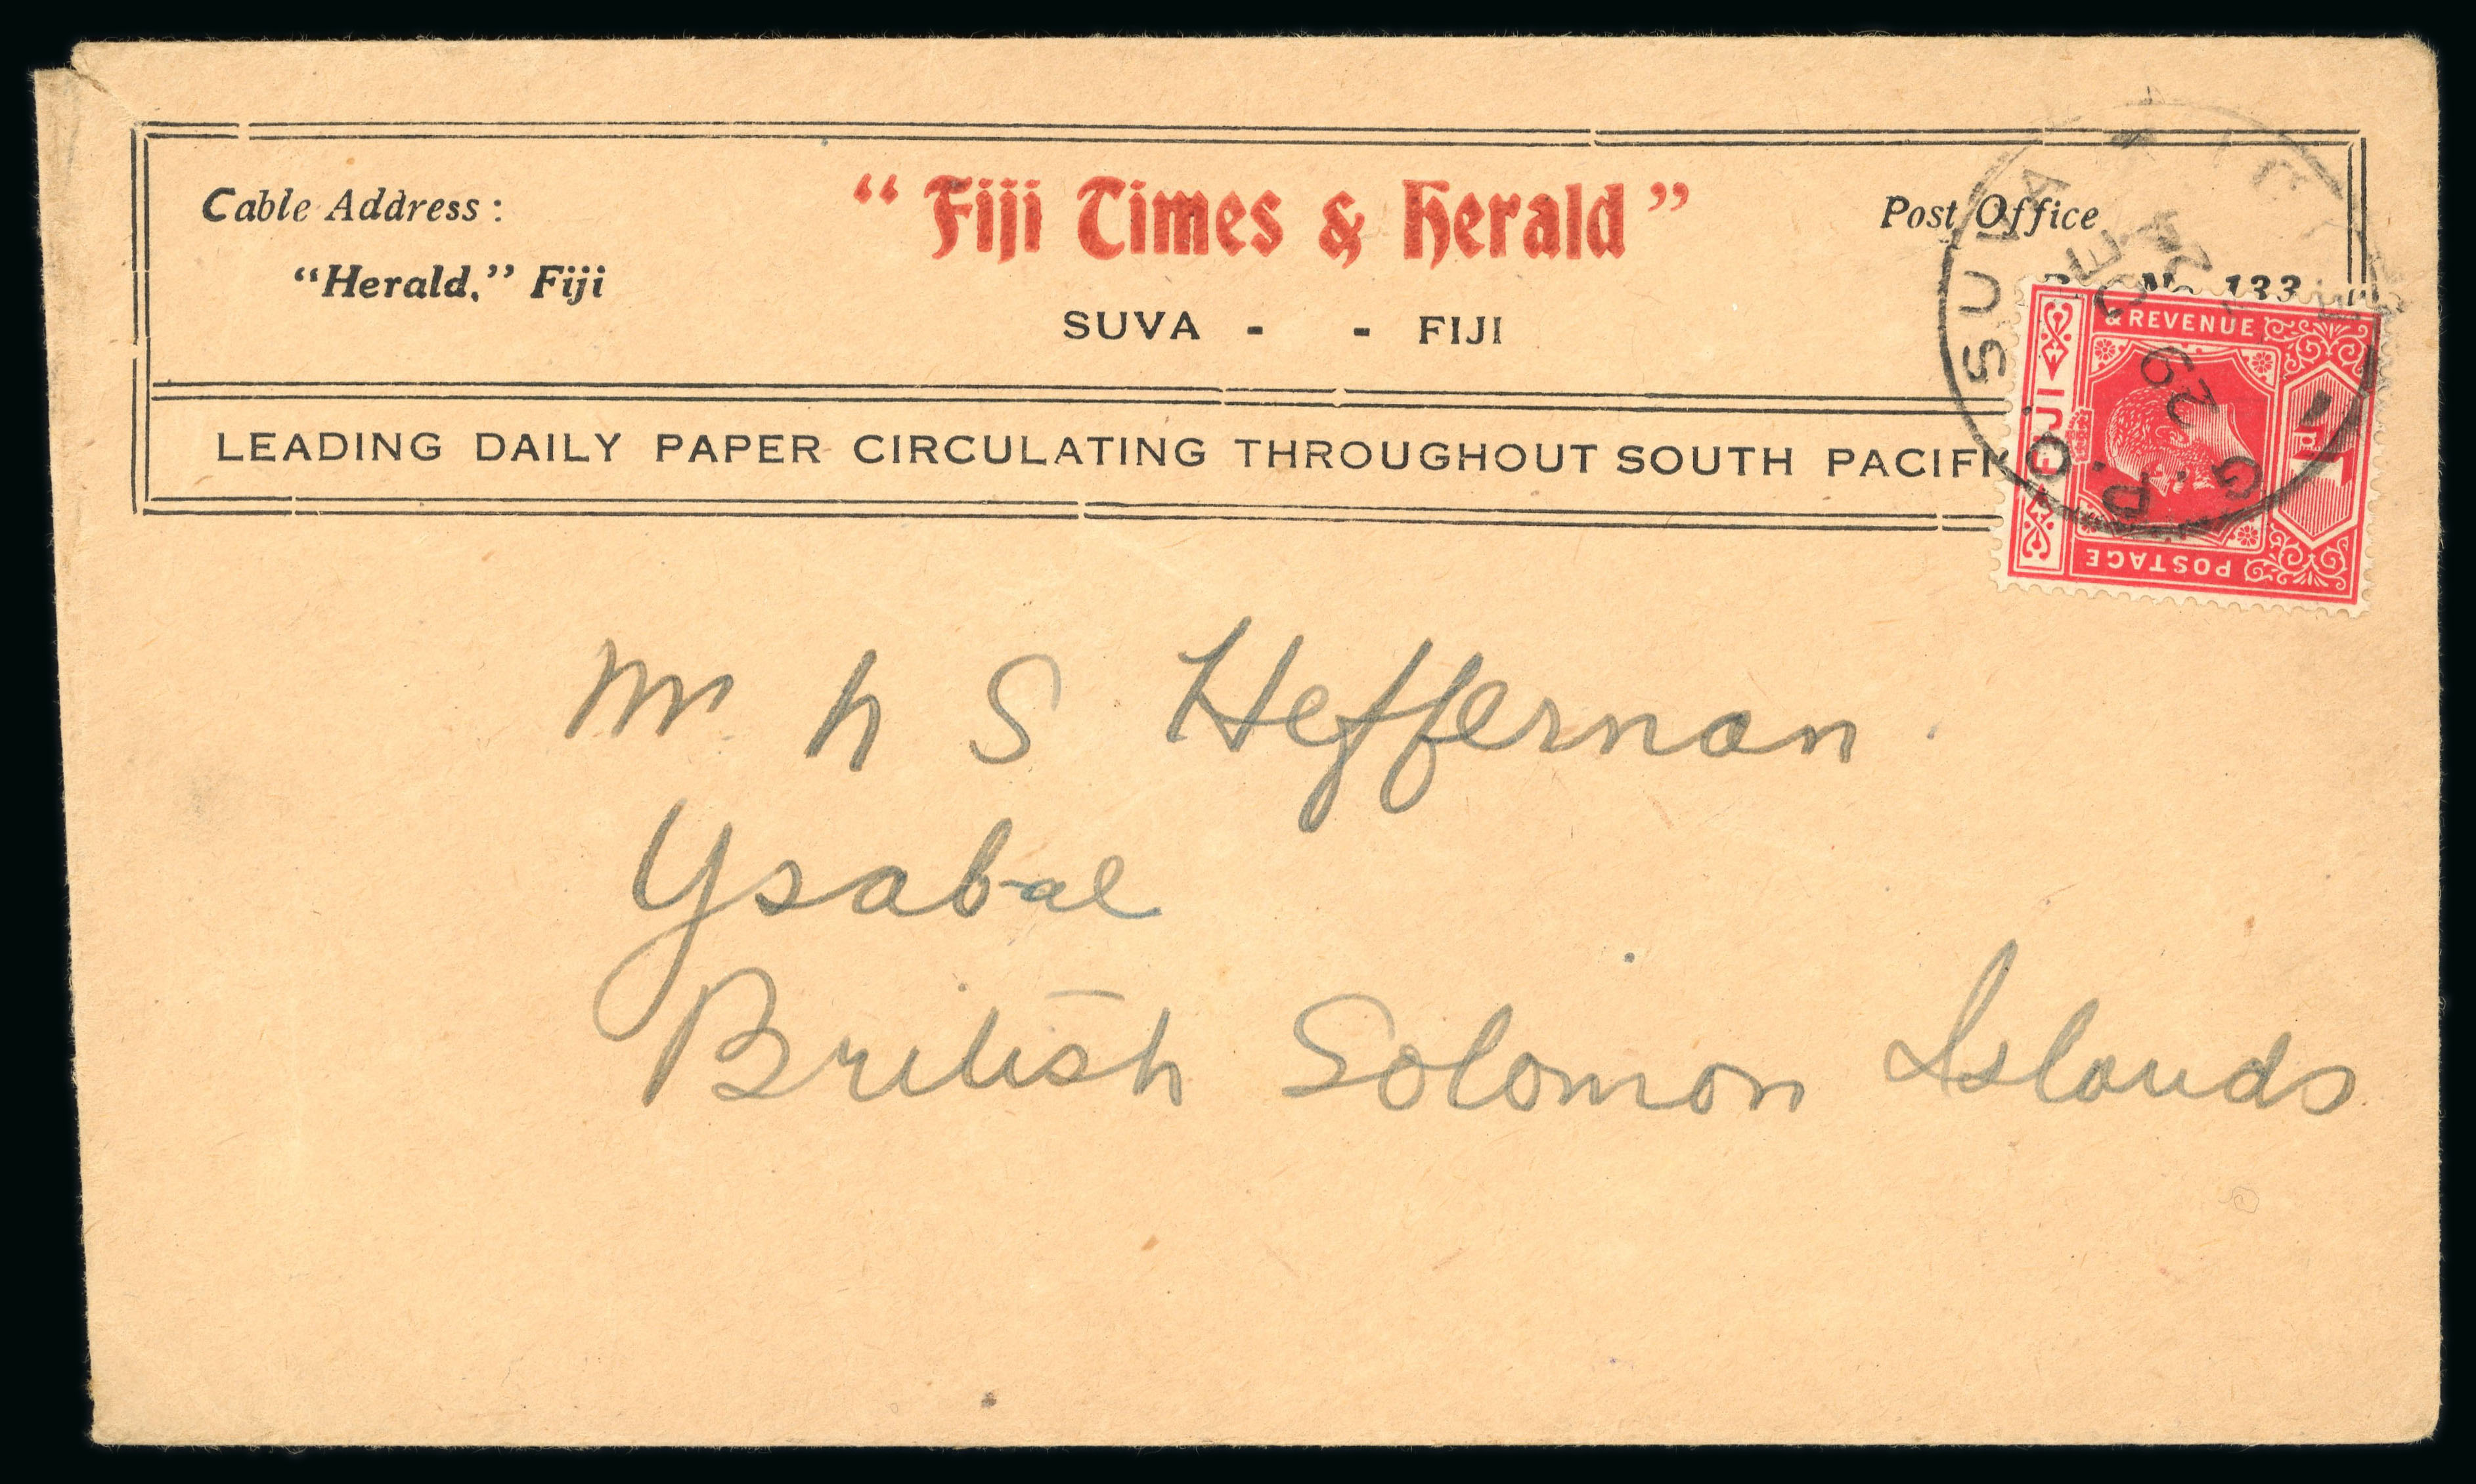 Cable Address:
"Herald," Fiji
"Fiji Times & Herald"
SUVA - - FIJI
Post Office
No. 133
LEADING DAILY PAPER CIRCULATING THROUGHOUT SOUTH PACIFI
G.P.O. SUVA FIJI
DEC
29
& REVENUE
FIJI
1d
POSTAGE
Mr N S Heffernan
Ysabal
British Solomon Islands